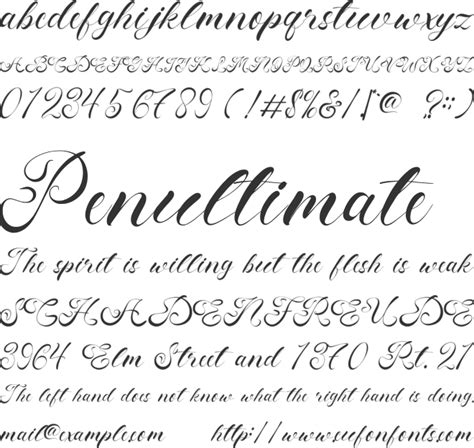 abcdefghijklmnopqrstuvwxyz
ABCDEFGHIJKLMNOPQRSTUVWXYZ
0123456789 (!#$%&
@ ?:)
Penultimate
The spirit is willing but the flesh is weak
SCHADENFREUDE
3964 Elm Street and 1370 Rt. 21
The left hand does not know what the right hand is doing.
mail@example.com